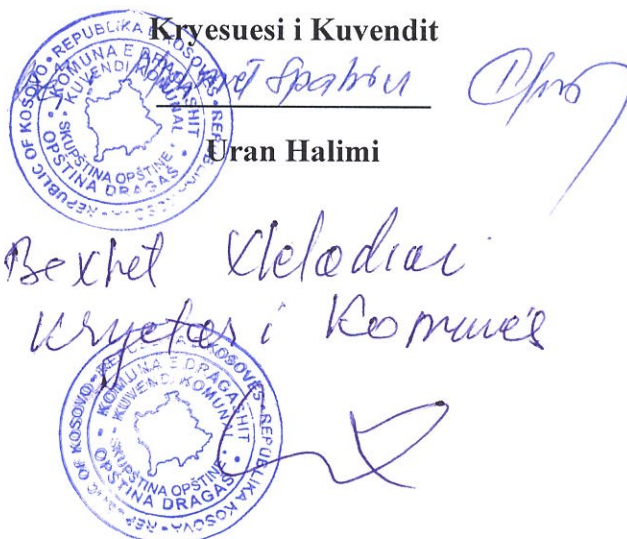 Kryesuesi i Kuvendit
Spahiu
Uran Halimi
REPUBLIKA E KOSOVËS • REPUBLIKA KOSOVA • REPUBLIC OF KOSOVO
KOMUNA E DRAGASHIT
KUVENDI KOMUNAL
SKUPŠTINA OPŠTINE
OPŠTINA DRAGAŠ
Bexhet Xheladini
Kryetar i Komunës
REPUBLIKA E KOSOVËS • REPUBLIKA KOSOVA • REPUBLIC OF KOSOVO
KOMUNA E DRAGASHIT
KUVENDI KOMUNAL
SKUPŠTINA OPŠTINE
OPŠTINA DRAGAŠ